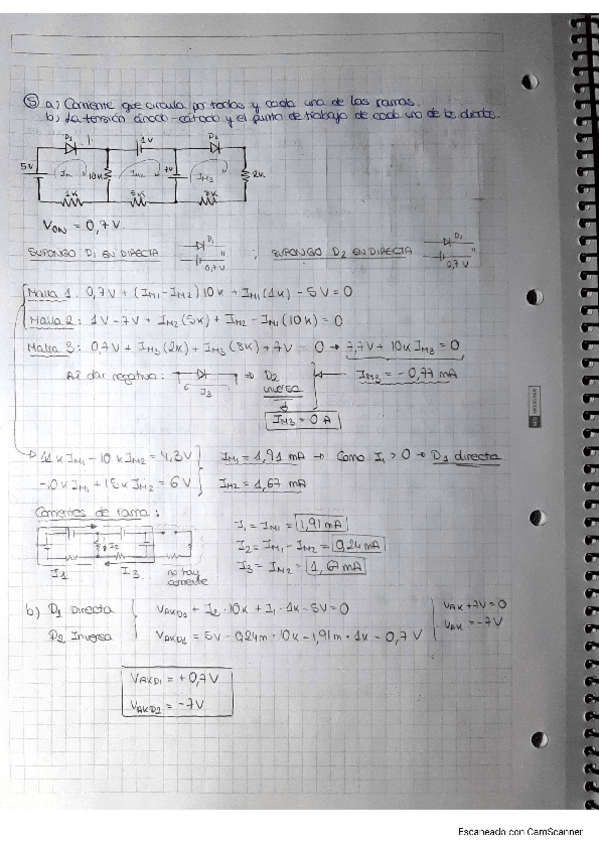 5 a) Corriente que circula por todas y cada una de las ramas.
b) La tensión ánodo-cátodo y el punto de trabajo de cada uno de los diodos.
D1 1V D2
5V IM1 10K IM2 7V IM3 2K
1K 5K
VON = 0,7 V.
SUPONGO D1 EN DIRECTA D1 0,7 V ; SUPONGO D2 EN DIRECTA D2 0,7 V
Malla 1: 0,7V + (IM1 - IM2) 10K + IM1 (1K) - 5V = 0
Malla 2: 1V - 7V + IM2 (5K) + IM2 - IM1 (10K) = 0
Malla 3: 0,7V + IM3 (2K) + IM3 (8K) + 7V = 0 → 7,7V + 10K IM3 = 0
Al dar negativa: I3 → D2 inversa IM3 = -0,77 mA
IM3 = 0 A
11K IM1 - 10K IM2 = 4,3V IM1 = 1,91 mA → Como I1 > 0 → D1 directa
-10K IM1 + 15K IM2 = 6V IM2 = 1,67 mA
Corrientes de rama:
I1 = IM1 = 1,91 mA
I2 = IM1 - IM2 = 0,24 mA
I3 = IM2 = 1,67 mA
I1 I2 I3 no hay corriente
b) D1 Directa VAKD1 + I2 · 10K + I1 · 1K - 5V = 0 VAK + 7V = 0
D2 Inversa VAKD1 = 5V - 0,24m · 10K - 1,91m · 1K = 0,7 V VAK = -7V
VAKD1 = +0,7V
VAKD2 = -7V
Escaneado con CamScanner